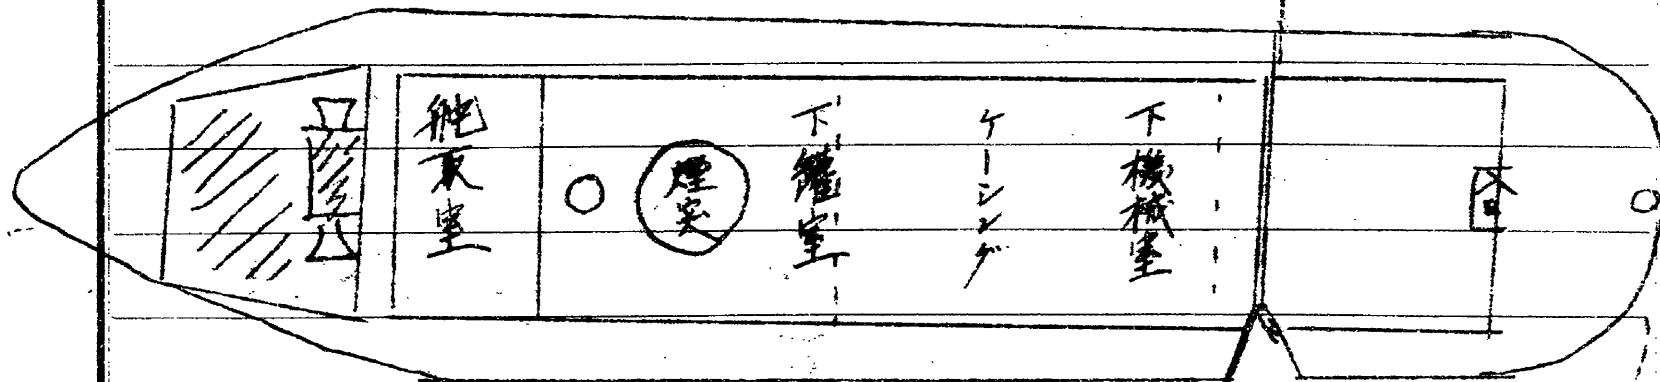 舵取室
煙突
下罐室
ケーシング
下機械室
入口